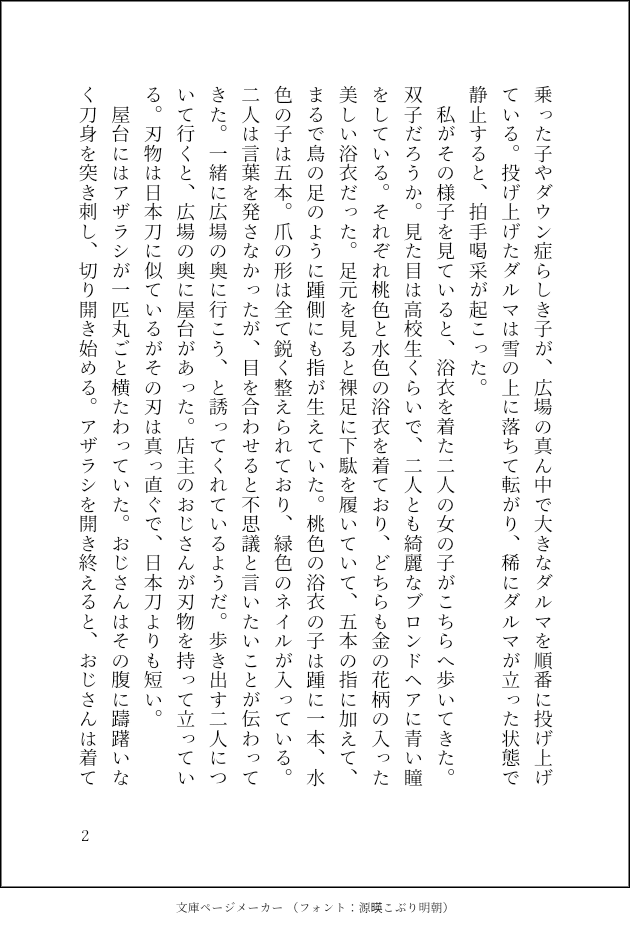 乗った子やダウン症らしき子が、広場の真ん中で大きなダルマを順番に投げ上げ
ている。投げ上げたダルマは雪の上に落ちて転がり、稀にダルマが立った状態で
静止すると、拍手喝采が起こった。
　私がその様子を見ていると、浴衣を着た二人の女の子がこちらへ歩いてきた。
双子だろうか。見た目は高校生くらいで、二人とも綺麗なブロンドヘアに青い瞳
をしている。それぞれ桃色と水色の浴衣を着ており、どちらも金の花柄の入った
美しい浴衣だった。足元を見ると裸足に下駄を履いていて、五本の指に加えて、
まるで鳥の足のように踵側にも指が生えていた。桃色の浴衣の子は踵に一本、水
色の子は五本。爪の形は全て鋭く整えられており、緑色のネイルが入っている。
二人は言葉を発さなかったが、目を合わせると不思議と言いたいことが伝わって
きた。一緒に広場の奥に行こう、と誘ってくれているようだ。歩き出す二人につ
いて行くと、広場の奥に屋台があった。店主のおじさんが刃物を持って立ってい
る。刃物は日本刀に似ているがその刃は真っ直ぐで、日本刀よりも短い。
　屋台にはアザラシが一匹丸ごと横たわっていた。おじさんはその腹に躊躇いな
く刀身を突き刺し、切り開き始める。アザラシを開き終えると、おじさんは着て
2
文庫ページメーカー（フォント：源暎こぶり明朝）